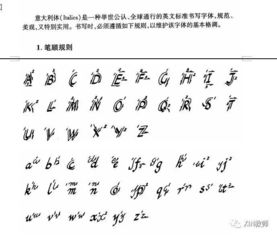 意大利体(Italics)是一种举世公认、全球通行的英文标准书写字体,规范、
美观、又特别实用。书写时,必须遵循如下规则,以维护该字体的基本格调。
1. 笔顺规则
A B C D E F G H I J
K L M N O P Q R S T
U V W X Y Z
a b c d e f g h i j
k l m n o p q r s t
u v w x y z
XIN教师